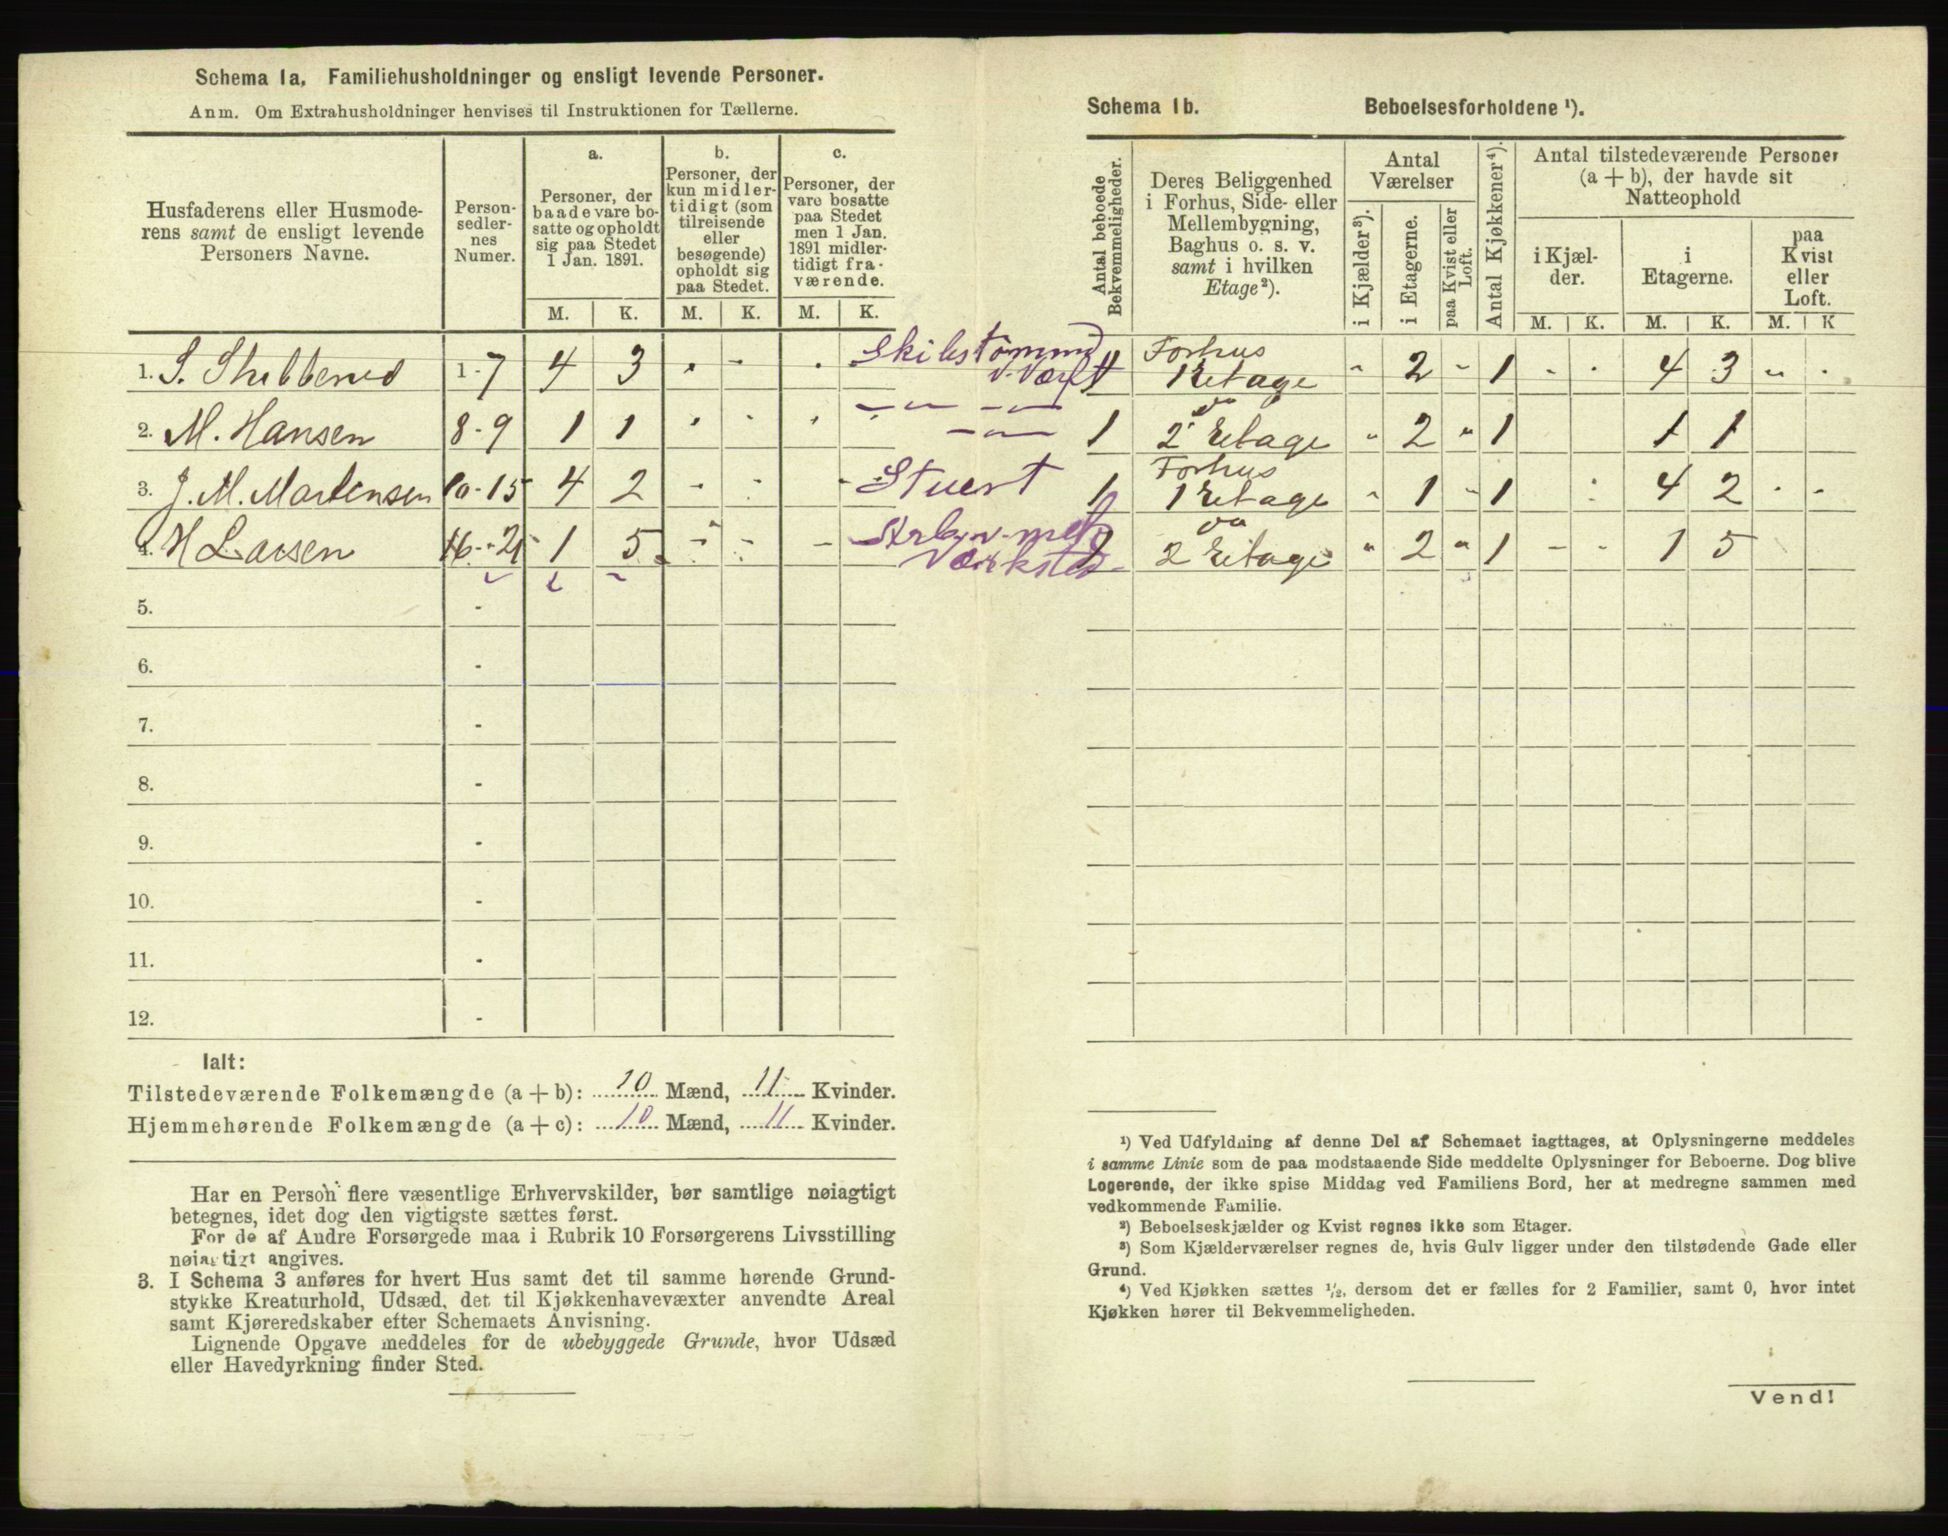 Schema 1a. Familiehusholdninger og ensligt levende Personer.
Anm. Om Extrahusholdninger henvises til Instruktionen for Tællerne.
Husfaderens eller Husmoderens samt de ensligt levende Personers Navne.
Personsedlernes Numer.
a.
Personer, der baade vare bosatte og opholdt sig paa Stedet 1 Jan. 1891.
b.
Personer, der kun midlertidigt (som tilreisende eller besøgende) opholdt sig paa Stedet.
c.
Personer, der vare bosatte paa Stedet men 1 Jan. 1891 midlertidigt fraværende.
M. K. M. K. M. K.
1. S. 1-7 4 3 Skibstømmerm v. Værft
2. M. Hansen 8-9 1 1
3. J. M. Martensen 10-15 4 2 Stuert
4. H Larsen 16-21 1 5 Arb. v. mek Værksted
5. -
6. -
7. -
8. -
9. -
10. -
11. -
12. -
Ialt:
Tilstedeværende Folkemængde (a + b): 10 Mænd, 11 Kvinder.
Hjemmehørende Folkemængde (a + c): 10 Mænd, 11 Kvinder.
Har en Person flere væsentlige Erhvervskilder, bør samtlige nøiagtigt
betegnes, idet dog den vigtigste sættes først.
For de af Andre Forsørgede maa i Rubrik 10 Forsørgerens Livsstilling
nøiagtigt angives.
3. I Schema 3 anføres for hvert Hus samt det til samme hørende Grund-
stykke Kreaturhold, Udsæd, det til Kjøkkenhavevæxter anvendte Areal
samt Kjøreredskaber efter Schemaets Anvisning.
Lignende Opgave meddeles for de ubebyggede Grunde, hvor Udsæd
eller Havedyrkning finder Sted.
Schema 1b. Beboelsesforholdene ¹).
Antal beboede Bekvemmeligheder.
Deres Beliggenhed i Forhus, Side- eller Mellembygning, Baghus o. s. v. samt i hvilken Etage²).
Antal Værelser
i Kjælder³).
i Etagerne.
paa Kvist eller Loft.
Antal Kjøkkener⁴).
Antal tilstedeværende Personer (a + b), der havde sit Natteophold
i Kjælder.
i Etagerne.
paa Kvist eller Loft.
M. K. M. K. M. K
1 Forhus 1 Etage " 2 " 1 - - 4 3 " -
1 do 2 Etage " 2 " 1 1 1
1 Forhus 1 Etage " 1 " 1 4 2 - -
1 do 2 Etage " 2 " 1 - - 1 5
¹) Ved Udfyldning af denne Del af Schemaet iagttages, at Oplysningerne meddeles
i samme Linie som de paa modstaaende Side meddelte Oplysninger for Beboerne. Dog blive
Logerende, der ikke spise Middag ved Familiens Bord, her at medregne sammen med
vedkommende Familie.
²) Beboelseskjælder og Kvist regnes ikke som Etager.
³) Som Kjælderværelser regnes de, hvis Gulv ligger under den tilstødende Gade eller
Grund.
⁴) Ved Kjøkken sættes ½, dersom det er fælles for 2 Familier, samt 0, hvor intet
Kjøkken hører til Bekvemmeligheden.
Vend!